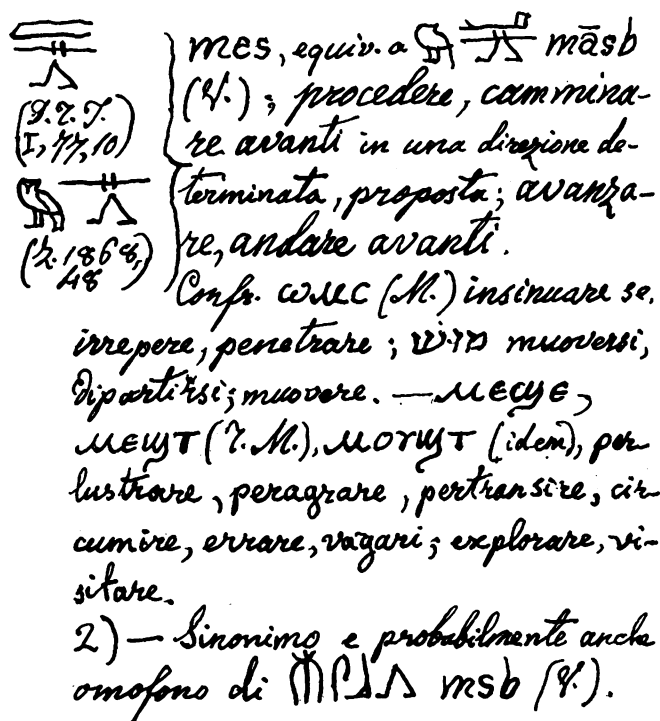 𓐝𓊃𓂻
(D.T.I.
I, 77, 10)
𓅓𓊃𓂻
(Z. 1868,
48)
mes, equiv. a 𓅓𓂝𓊃𓂻 māsb
(V.); procedere, cammina-
re avanti in una direzione de-
terminata, proposta; avanza-
re, andare avanti.
Confr. ⲱⲙⲥ (M.) insinuare se,
irrepere, penetrare; מוּש muoversi,
dipartirsi; muovere. — ⲙⲉϣⲉ,
ⲙⲉϣⲧ (T. M.), ⲙⲟⲩϣⲧ (idem), per-
lustrare, peragrare, pertransire, cir-
cumire, errare, vagari; explorare, vi-
sitare.
2) — Sinonimo e probabilmente anche
omofono di 𓄟𓋴𓃀𓂻 msb (V.).